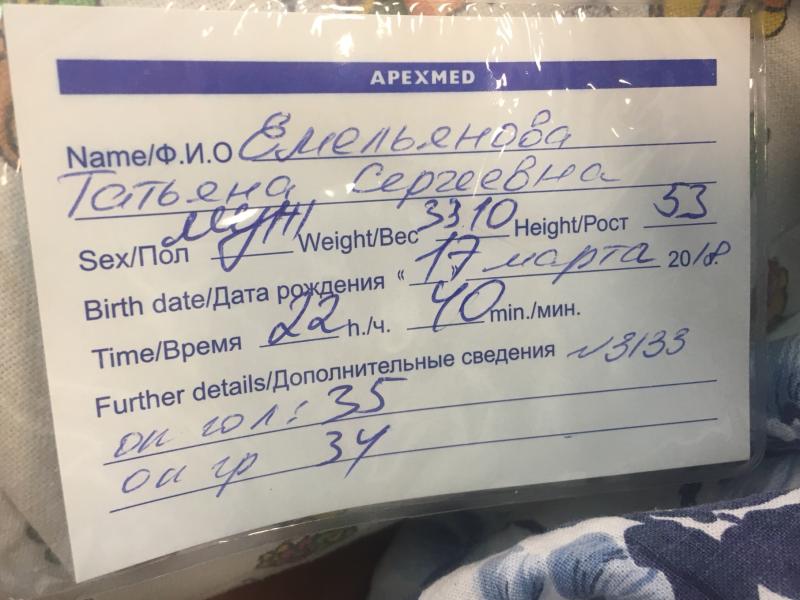 APEXMED
Name/Ф.И.О Емельянова
Татьяна Сергеевна
Sex/Пол муж Weight/Вес 3310 Height/Рост 53
Birth date/Дата рождения “17” марта 2018.
Time/Время 22 h./ч. 40 min./мин.
Further details/Дополнительные сведения №3133
ок гол: 35
ок гр 34